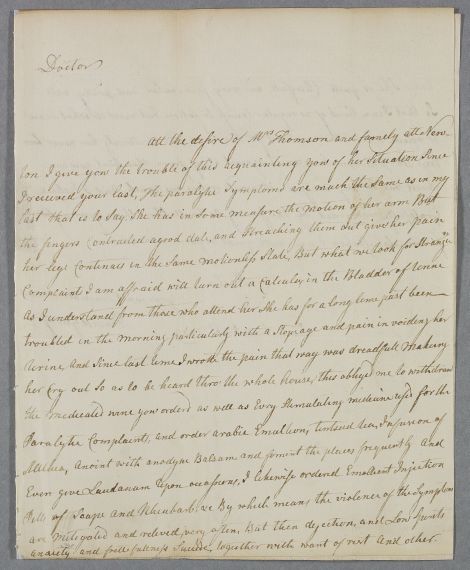 Doctor
Att the desire of Mrs Thomson and famely att New-
ton I give you the trouble of this acquainting you of her Situation Since
I received your last, The paralytic Symptoms are much the Same as in my
last that is to Say She has in Some measure the motion of her arm But
the fingers Contracted a good dale, and Streaching them out give her pain
her legs Continues in the Same motionless State, But what we look for Strangu
Complaint I am affraid will turn out a Calculey in the Bladder of Urine
As I understand from those who attend her She has for a long time past been
troubled in the morning particularly with a Stopage and pain in voiding her
Urine And Sine last time I wrote the pain that way was dreadfull Making
her Cry out So as to be heard thro the whole house, this oblig'd me to withdraw
the medicated wine you orderd as well as Every Stemulating medicine us'd for the
Paralytic Complaint, and order arabic Emulsion, lintseed tea, Infusion of
Althea, Anoint with anodyne Balsam and foment the places frequently And
Even give Laudanum Upon occasions, I likewise ordered Emollient Injection
Pills of Soape And Rheubarb &c By which means the violence of the Symptoms
are Mitigated and releved very often, But then dejection, and Low Spirits
anxiety and fullness Suceede, together with want of rest And other